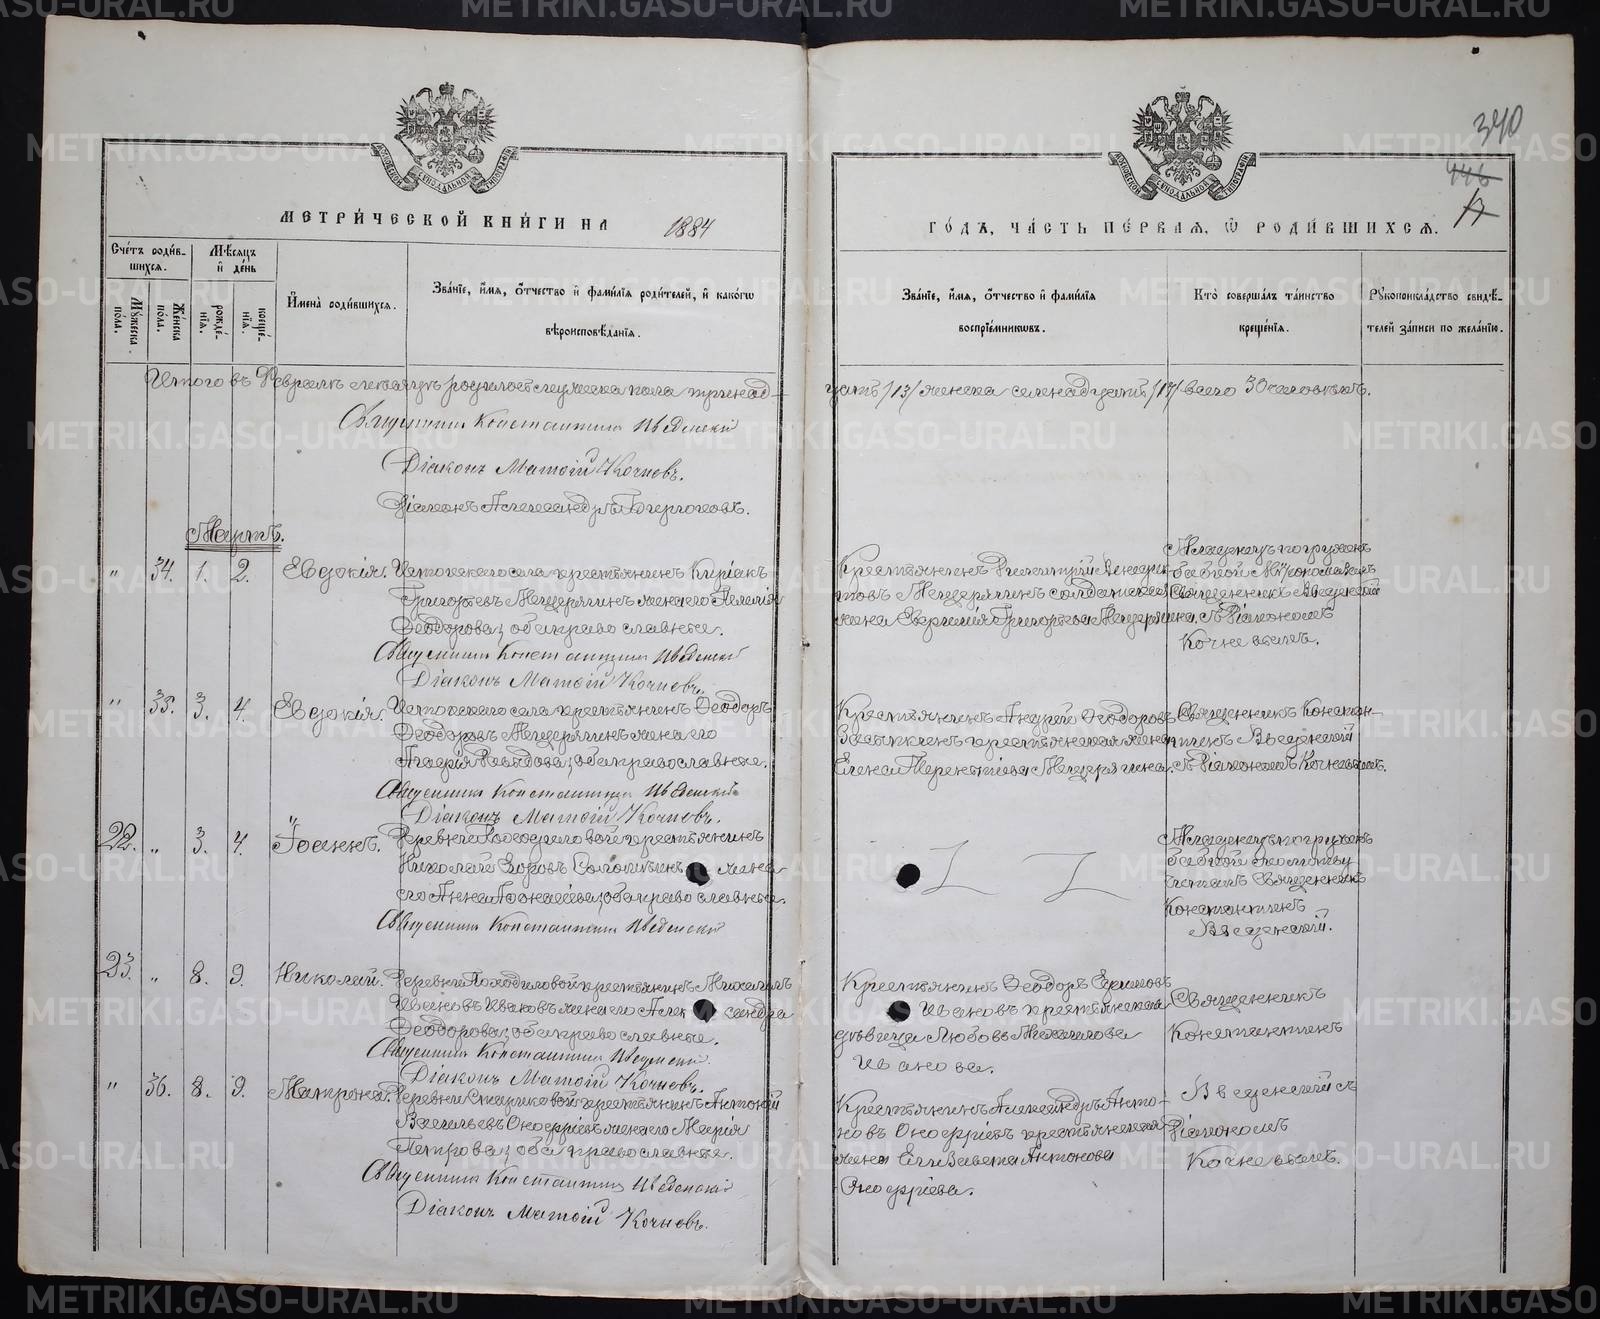 370
446
17
МОСКОВСКОЙ СѴНОДАЛЬНОЙ ТИПОГРАФІИ
МЕТРИЧЕСКОЙ КНИГИ НА 1884
ГОДЪ, ЧАСТЬ ПЕРВАЯ, Ѡ РОДИВШИХСЯ.
Счетъ родив-
шихся.
Мужеска пола.
Женска пола.
Мѣсяцъ и день
рожде-
нія.
креще-
нія.
Имена родившихся.
Званіе, имя, отчество и фамилія родителей, и какогѡ
вѣроисповѣданія.
Званіе, имя, отчество и фамилія
воспріемниковъ.
Кто совершалъ таинство
крещенія.
Рукоприкладство свидѣ-
телей записи по желанію.
Итого въ Февралѣ мѣсяцѣ родилось мужеска пола тринад-
цать /13/ женска семнадцать /17/ всего 30 человѣкъ.
Священникъ Константинъ Введенскій
Діаконъ Матѳій Кочневъ.
Діаконъ Александръ
Мартъ.
" 34. 1. 2. Евдокія.
Истокскаго села крестьянинъ Киріакъ
Григорьевъ Мещерягинъ жена его Пелагія
Ѳеодорова; оба православные.
Священникъ Константинъ Введенскій
Діаконъ Матѳій Кочневъ.
Крестьянинъ Димитрій
Мещерягинъ солдатская
жена Евгенія Григорьева Мещерягина.
Младенецъ погруженъ
бабкой Мѵропомазалъ
Священникъ Введенскій
съ Діакономъ
Кочневымъ.
" 35. 3. 4. Евдокія.
Истокскаго села крестьянинъ Ѳеодоръ
Ѳеодоровъ Мещерягинъ жена его
Агафія Давыдова; оба православные.
Священникъ Константинъ Введенскій
Діаконъ Матѳій Кочневъ.
Крестьянинъ Андрей Ѳеодоровъ
Засыпкинъ крестьянская жена
Елена Терентіева Мещерягина.
Священникъ Констан-
тинъ Введенскій
съ Діакономъ Кочневымъ.
22. " 3. 4. Іоаннъ.
Деревни Походиловой крестьянинъ
Николай Егоровъ жена
его Анна Аѳонасіева; оба православные.
Священникъ Константинъ Введенскій
Младенецъ погруженъ
бабкой молитву
читалъ Священникъ
Константинъ
Введенскій.
23. " 8. 9. Николай.
Деревни Походиловой крестьянинъ Михаилъ
Ивановъ Ивановъ жена его Александра
Ѳеодорова; оба православные.
Священникъ Константинъ Введенскій
Діаконъ Матѳій Кочневъ.
Крестьянинъ Ѳеодоръ Ефимовъ
Ивановъ крестьянская
дѣвица Любовь Михаилова
Иванова.
Священникъ
Константинъ
" 36. 8. 9. Матрона.
Деревни Стариковой крестьянинъ Антоній
Васильевъ Онофріевъ жена его Марія
Петрова; оба православные.
Священникъ Константинъ Введенскій
Діаконъ Матѳій Кочневъ.
Крестьянинъ Александръ Анто-
новъ Онофріевъ крестьянская
жена Елизавета Антонова
Онофріева.
Введенскій съ
Діакономъ
Кочневымъ.
METRIKI.GASO-URAL.RU